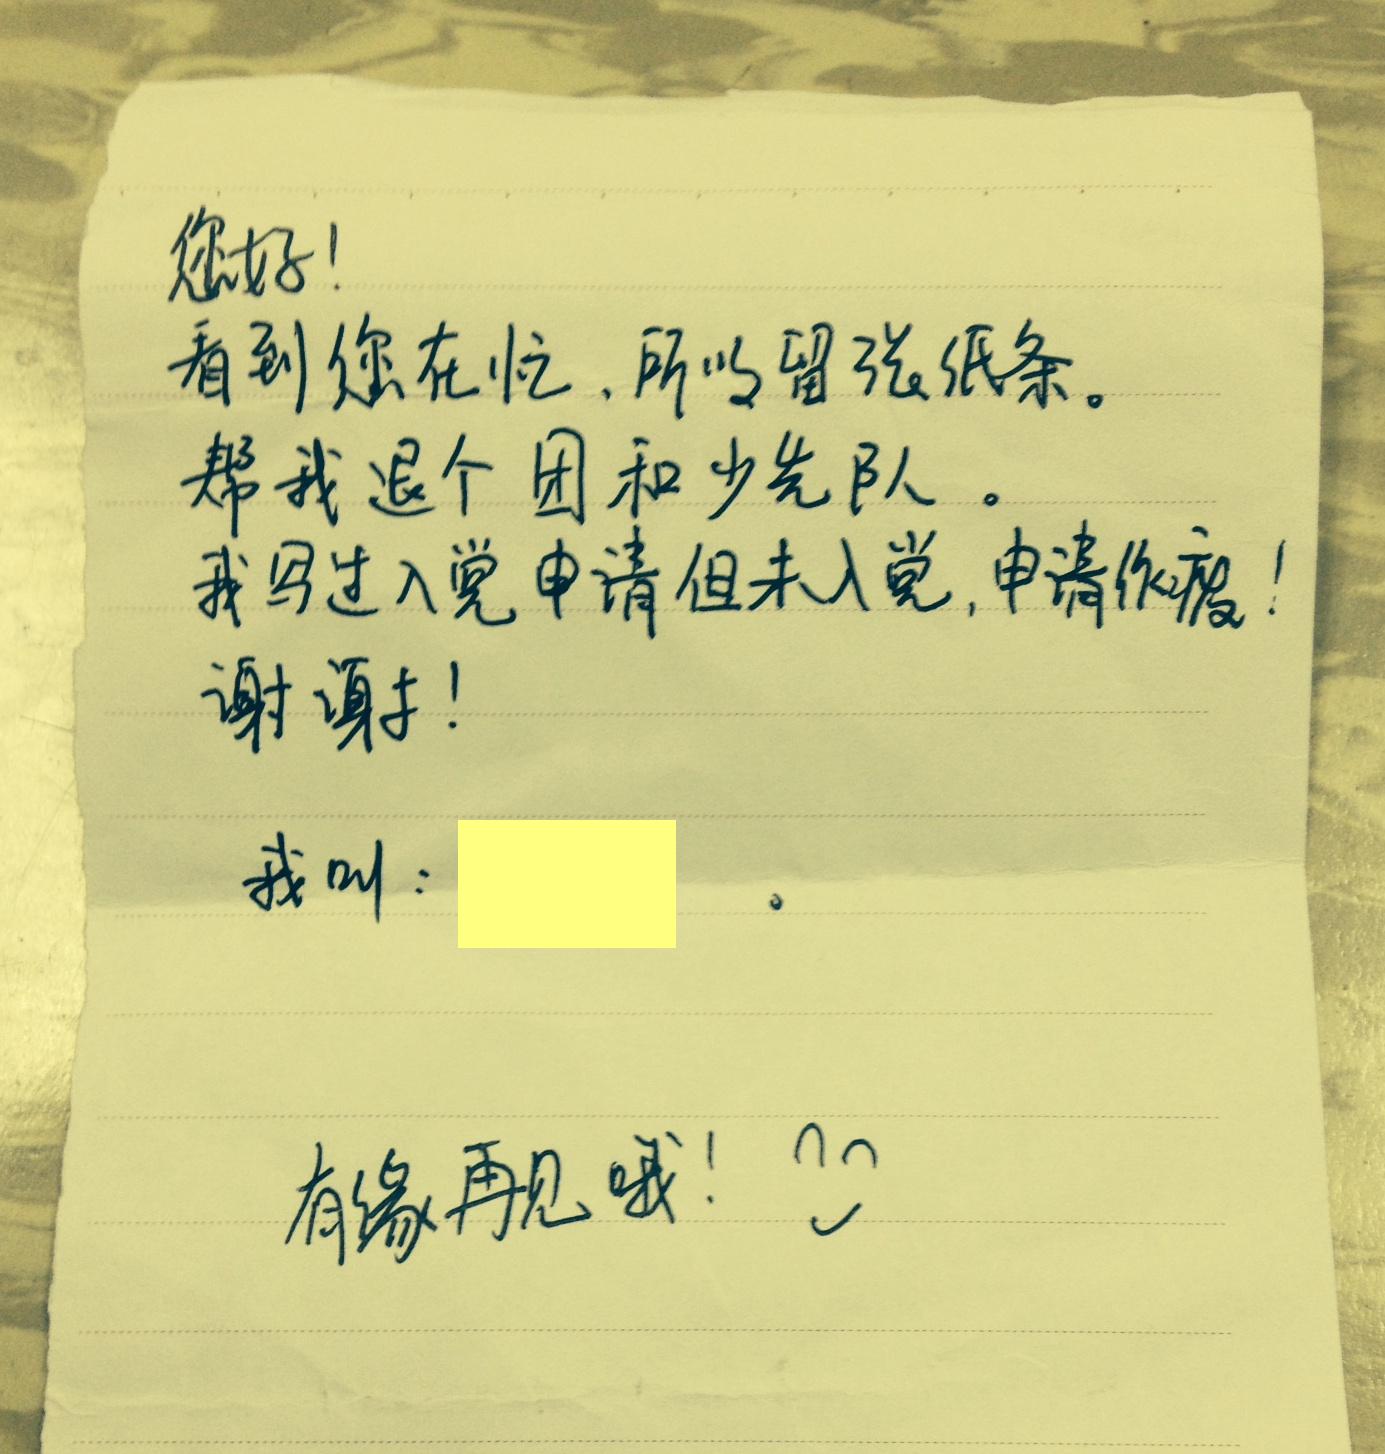 您好!
看到您在忙、所以留张纸条。
帮我退个团和少先队。
我写过入党申请但未入党,申请作废!
谢谢!
我叫:
。
有缘再见哦!